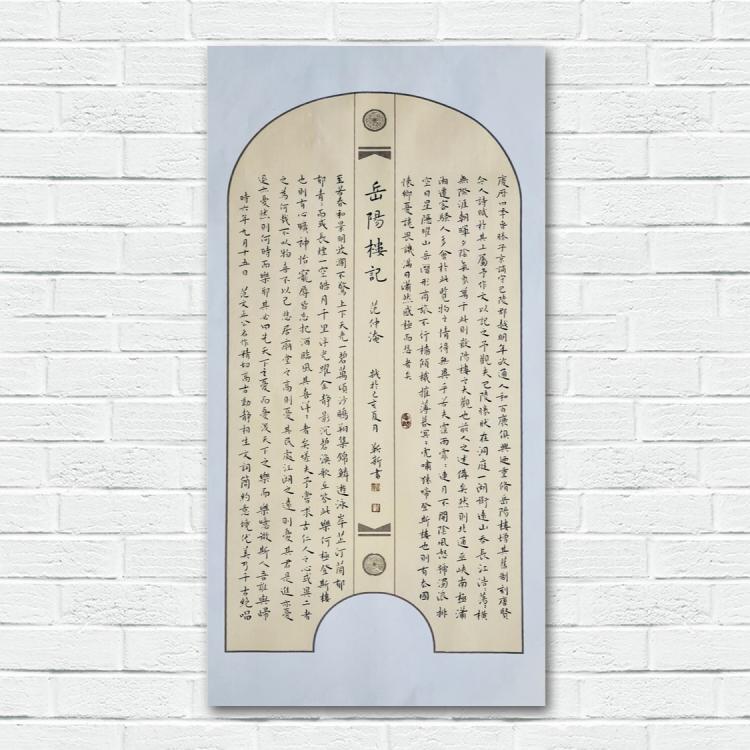 慶曆四年春滕子京謫守巴陵郡越明年政通人和百廢俱興迺重修岳陽樓增其舊制刻唐賢
今人詩賦於其上屬予作文以記之予觀夫巴陵勝狀在洞庭一湖銜遠山吞長江浩〻蕩〻橫
無際涯朝暉夕陰氣象萬千此則岳陽樓之大觀也前人之述備矣然則北通巫峽南極瀟
湘遷客騷人多會於此覽物之情得無異乎若夫霪雨霏〻連月不開陰風怒號濁浪排
空日星隱曜山岳潛形商旅不行檣傾楫摧薄暮冥〻虎嘯猿啼登斯樓也則有去國
懷鄉憂讒畏譏滿目蕭然感極而悲者矣
岳陽樓記 范仲淹 於己亥夏月 新書
至若春和景明波瀾不驚上下天光一碧萬頃沙鷗翔集錦鱗遊泳岸芷汀蘭郁
郁青〻而或長煙一空皓月千里浮光耀金靜影沉璧漁歌互答此樂何極登斯樓
也則有心曠神怡寵辱皆忘把酒臨風其喜洋〻者矣嗟夫予嘗求古仁人之心或異二者
之為何哉不以物喜不以己悲居廟堂之高則憂其民處江湖之遠則憂其君是進亦憂
退亦憂然則何時而樂耶其必曰先天下之憂而憂後天下之樂而樂噫微斯人吾誰與歸
時六年九月十五日 范文正公名作精切高古動靜相生文詞簡約意境優美乃千古絕唱